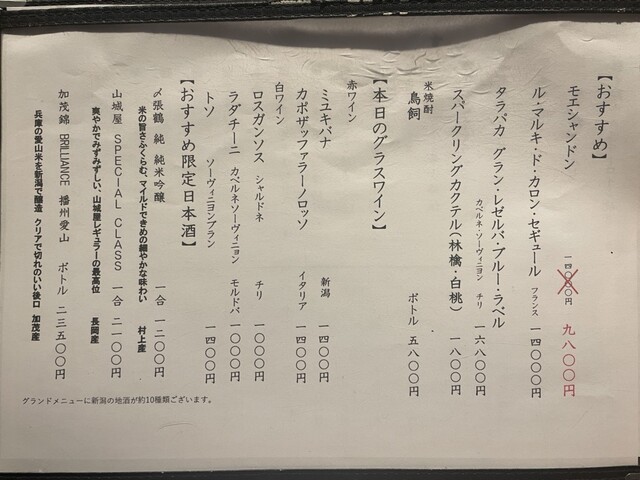 【おすすめ】
モエシャンドン 一四〇〇〇円 九八〇〇円
ル・マルキ・ド・カロン・セギュール フランス 一四〇〇〇円
タラパカ グラン・レゼルバ・ブルー・ラベル
カベルネ・ソーヴィニヨン チリ 一六八〇〇円
スパークリングカクテル(林檎・白桃) 一八〇〇円
米焼酎
鳥飼 ボトル 五八〇〇円
【本日のグラスワイン】
赤ワイン
ミユキバナ 新潟 一四〇〇円
カポザッファラーノロッソ イタリア 一四〇〇円
白ワイン
ロスガンソス シャルドネ チリ 一〇〇〇円
ラダチーニ カベルネソーヴィニョン モルドバ 一〇〇〇円
トソ ソーヴィニヨンブラン 一四〇〇円
【おすすめ限定日本酒】
〆張鶴 純 純米吟醸 一合 一二〇〇円
米の旨さふくらむ、マイルドできめの細やかな味わい 村上産
山城屋 SPECIAL CLASS 一合 二一〇〇円
爽やかでみずみずしい、山城屋レギュラーの最高位 長岡産
加茂錦 BRILLIANCE 播州愛山 ボトル 二三五〇〇円
兵庫の愛山米を新潟で醸造 クリアで切れのいい後口 加茂産
グランドメニューに新潟の地酒が約10種類ございます。